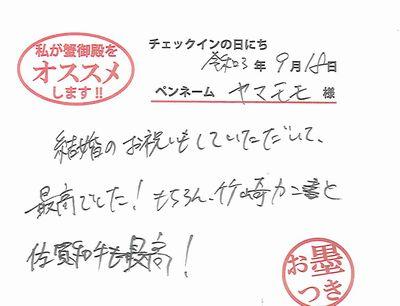 私が蟹御殿を
オススメ
します!!
チェックインの日にち
令和3年9月18日
ペンネーム ヤマモモ 様
結婚のお祝いもしていただいて、
最高でした！もちろん、竹崎カニと
佐賀和牛も最高！
お墨
つき